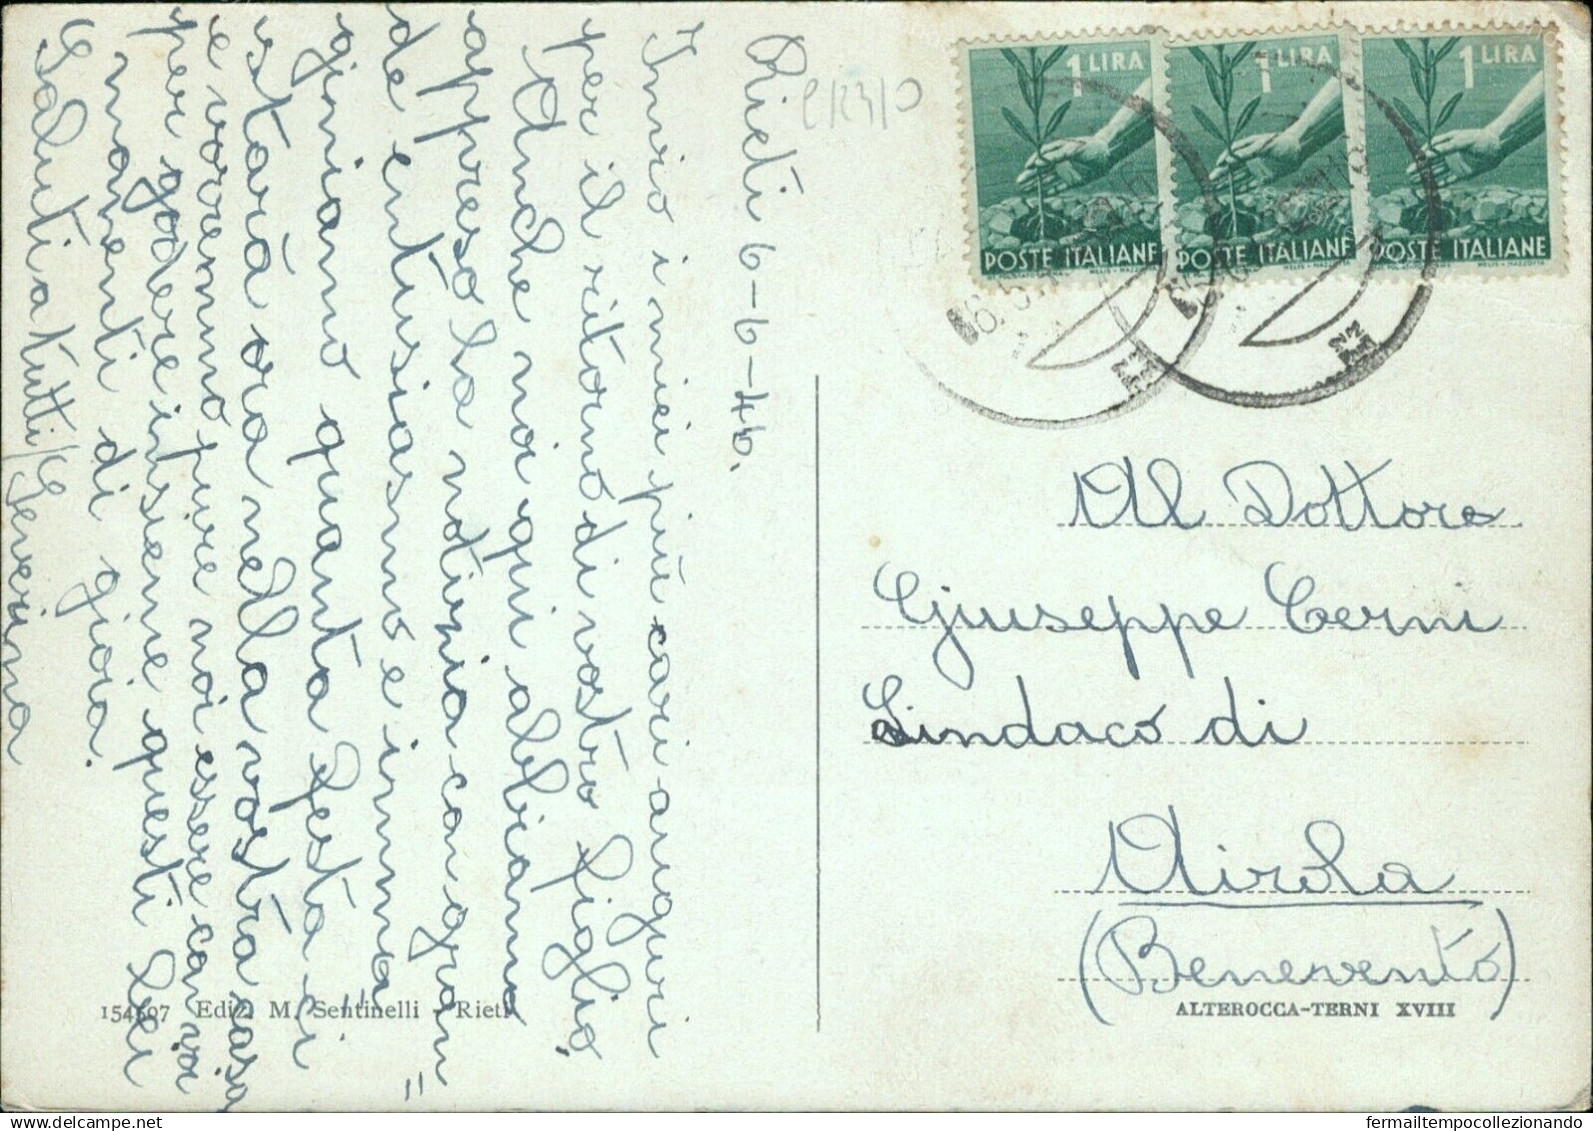 Rieti 6-6-46.
Invio i miei più cari auguri
per il ritorno di vostro figlio.
Anche noi qui abbiamo
appreso la notizia con gran
de entusiasmo e imma
giniamo quanta festa ci
starà ora nella vostra casa
e vorremmo pure noi essere con voi
per godere insieme questi bei
momenti di gioia.
Saluti a tutti
Severina
1 LIRA
POSTE ITALIANE
1 LIRA
POSTE ITALIANE
1 LIRA
POSTE ITALIANE
Al Dottore
Giuseppe Cerni
Sindaco di
Airola
(Benevento)
154597 Ediz. M. Sentinelli - Rieti
ALTEROCCA-TERNI XVIII
fermailtempocollezionando